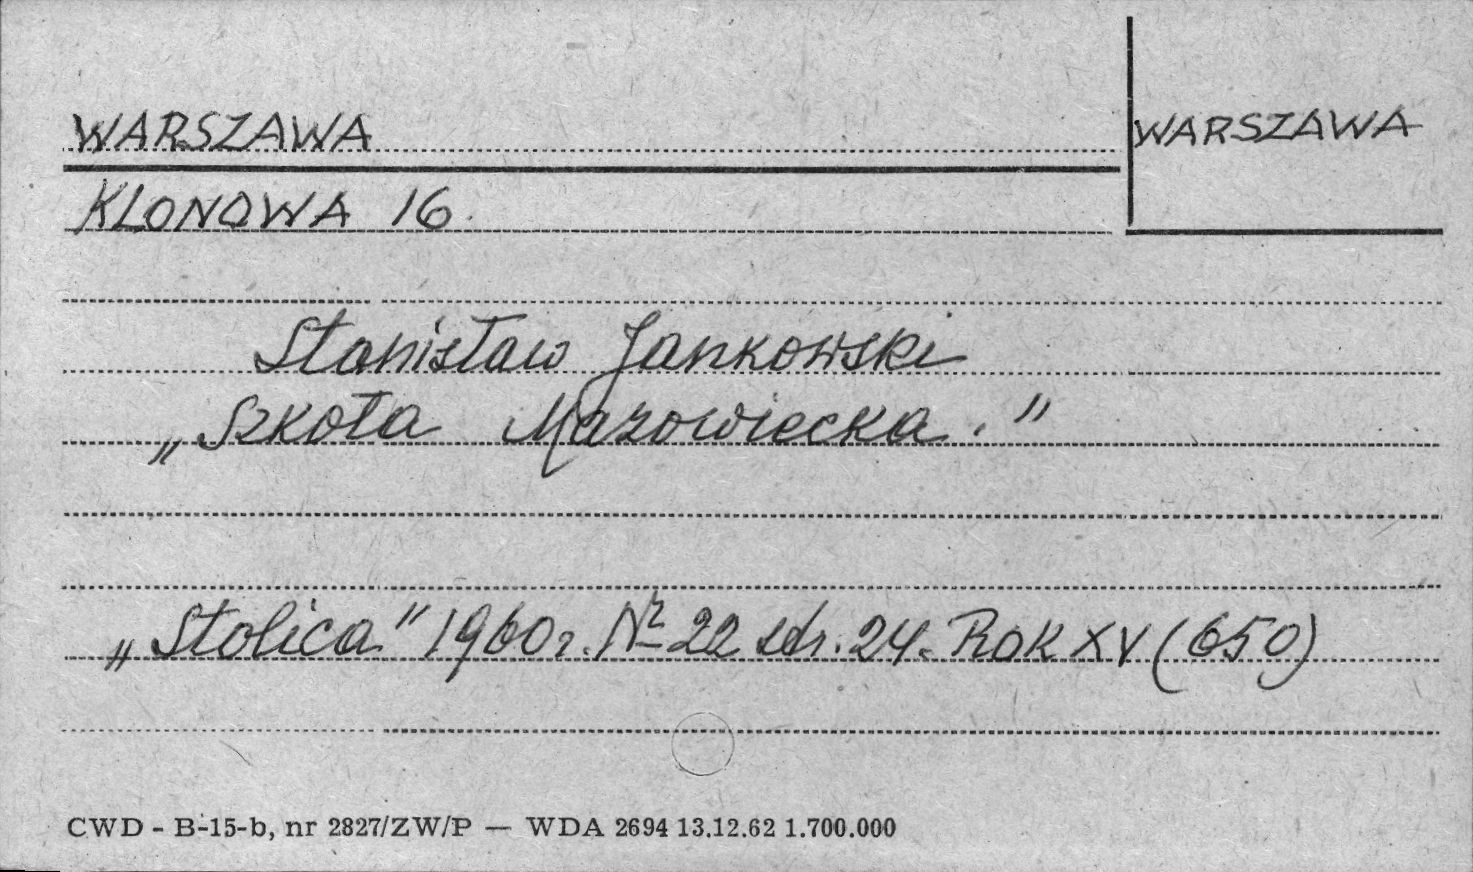 WARSZAWA
WARSZAWA
KLONOWA 16.
Stanisław Jankowski
„Szkoła Mazowiecka."
„Stolica" 1960 r. № 22 str. 24. Rok XV (650)
CWD - B-15-b, nr 2827/ZW/P — WDA 2694 13.12.62 1.700.000